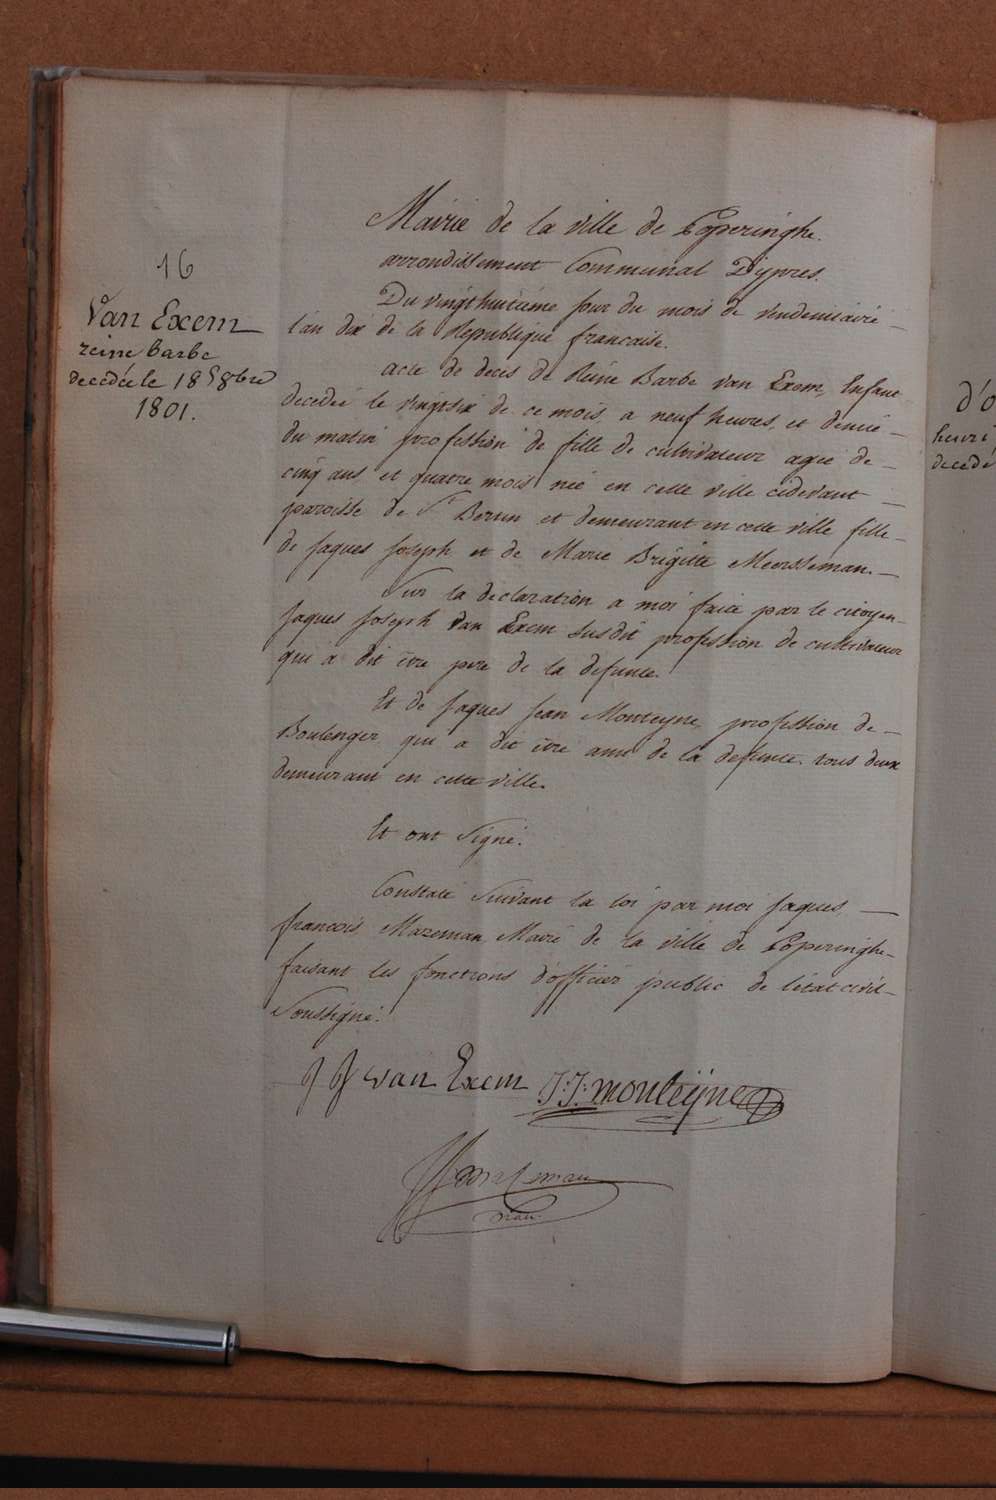 16
Van Exem
reine barbe
decedée le 18 8bre
1801.
Mairie de la ville de Poperinghe.
arrondissement Communal D'ypres.
Du vingt huitieme jour du mois de vendemiaire
l'an dix de la Republique francaise.
acte de deces de Reine Barbe van Exem, Enfant
decedée le vingtsix de ce mois, a neuf heures, et demie
du matin profession de fille de cultivateur agée de
cinq ans, et quatre mois née en cette ville cidevant
paroisse de St Bertin et demeurant en cette ville fille
de Jaques Joseph et de Marie Brigitte Meersseman.
Sur la declaration a moi faite par le citoyen
Jaques Joseph Van Exem susdit profession de cultivateur
qui a dit être pere de la defunte.
Et de Jaques Jean Monteyne, profession de
Boulenger qui a dit être ami de la defunte. tous deux
demeurant en cette ville.
Et ont signé.
Constaté suivant la loi par moi Jaques
francois Mazeman Maire de la ville de Poperinghe
faisant les fonctions d'officier public de l'état civil
soussigné.
J J van Exem J:J: monteÿne
Mazeman
d'o
henri
decedé